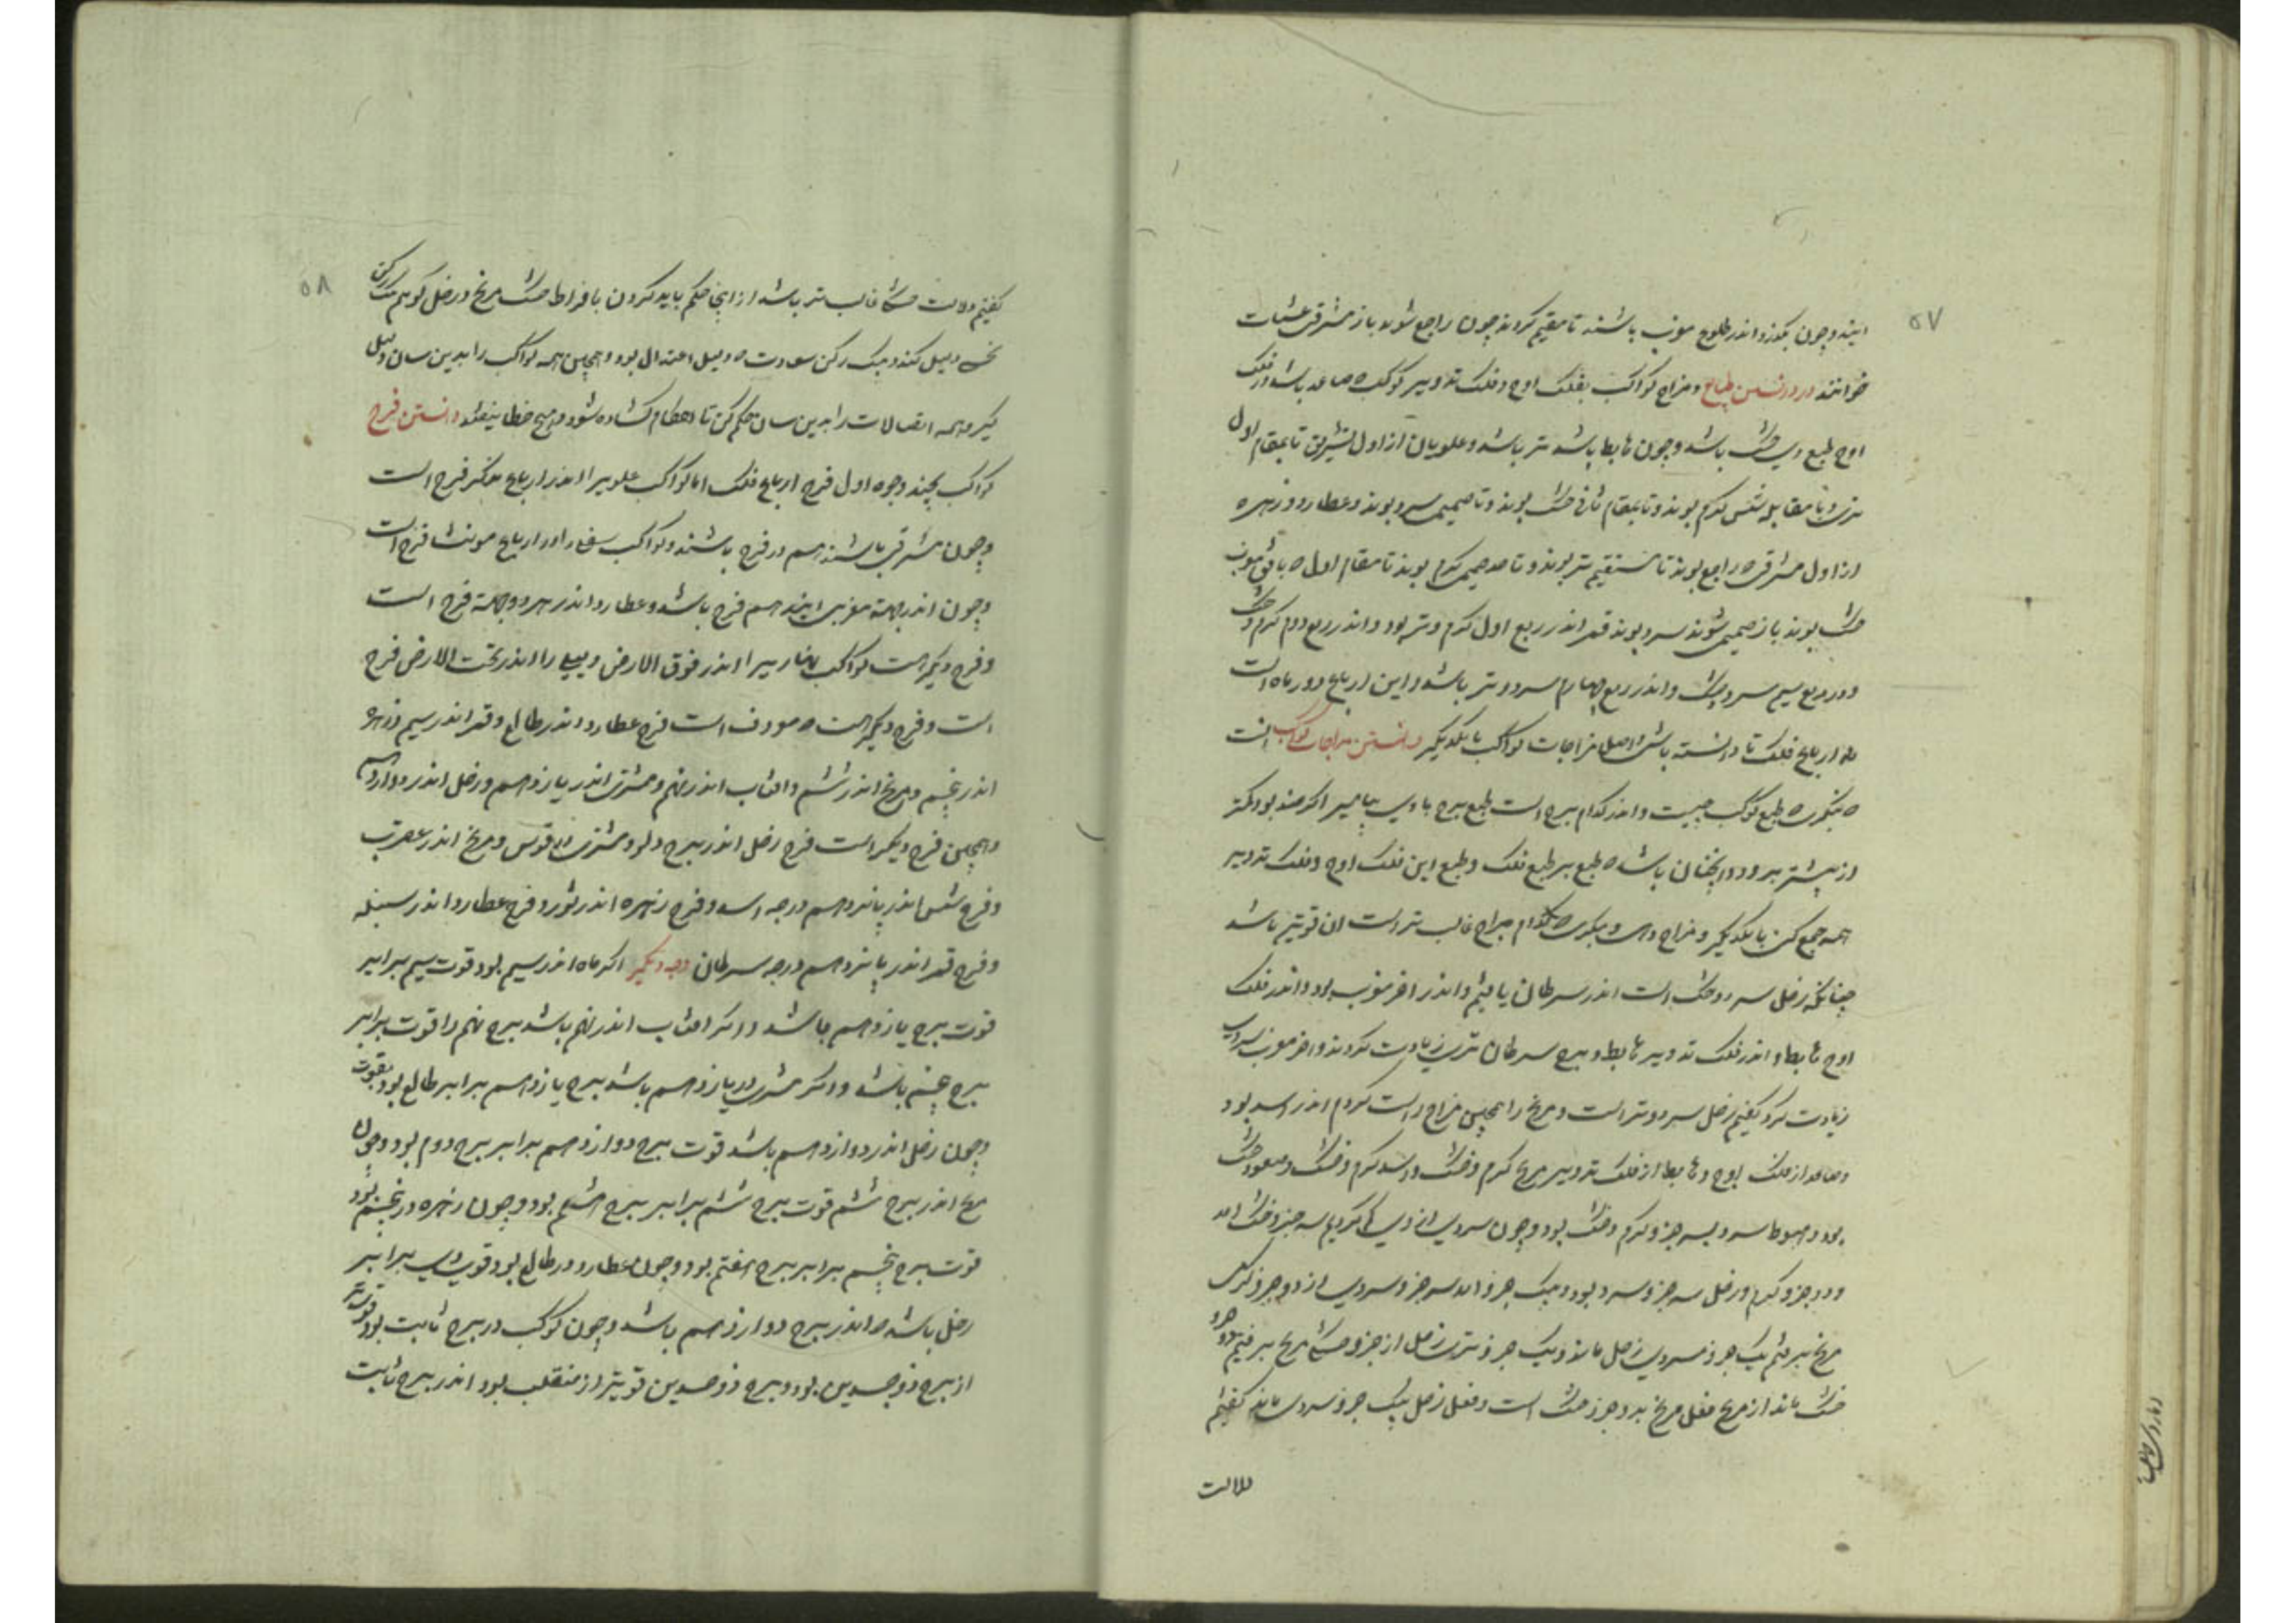 ۵۷
ایند و چون بگذرد اندر طلوع مغرب باشند تا مقیم کردند چون راجع شوند باز مشرقی عشیات
خوانند در دانستن طبایع و مزاج کواکب بفلک اوج و فلک تدویر کوکب که صاعد باشد در فلک
اوج طبع وی خشک باشد و چون هابط باشد تر باشد و علویان از اول تشریق تا بمقام اول
تری و تا مقابله شمس کرم بوند و تا بمقام ثانی خشک بوند و تا صمیمی سرد بوند و عطارد و زهره
از اول مشرقی که راجع بوند تا مستقیم تر بوند و تا حد صمیم کرم بوند تا مقام اول که باقی مغرب
خشک بوند باز صمیمی شوند سرد بوند قمر اندر ربع اول کرم و تر بود و اندر ربع دوم کرم و خشک
و در ربع سیم سرد و خشک و اندر ربع چهارم سرد و تر باشد و این ارباع دور ماه است
نه ارباع فلک تا دانسته باشی اصل مزاجات کواکب با یکدیکر دانستن مزاجات کواکب انست
که بنکری که طبع کوکب چیست و اندر کدام برج است طبع برج با وی بیامیز اکر ضد بود کمتر
از بیشتر برود و انچنان باشد که طبع بر طبع فلک و طبع این فلک اوج و فلک تدویر
همه جمع کن با یکدیکر و مزاج دهی و بنکری که کدام مزاج غالب تر است ان قویتر باشد
چنانکه زحل سرد و خشک است اندر سرطان یافتیم و اندر اخر مغرب بود و اندر فلک
اوج هابط و اندر فلک تدویر هابط و برج سرطان تری زیادت کردند و اخر مغرب سردی
زیادت کرد کفتیم زحل سرد و تر است و مریخ را همچنین مزاج راست کردم اندر اسد بود
و صاعد از فلک اوج و هابط از فلک تدویر مریخ کرم و خشک و اسد کرم و خشک و صعود خشک
بود و هبوط سرد بسه جزو کرم و خشک بود و چون سردی از وی کم کردیم سه جزو خشک امد
و دو جزو کرم و زحل سه جزو سرد بود و یک جزو امد سه جزو سردی از دو جزو کرمی
مریخ برفتم یک جزو سردی زحل ماند و یک جزو تری زحل از جزو خشکی مریخ برفتیم دو جزو
خشک ماند از مریخ فعل مریخ بدو جزو خشک است و فعل زحل بیک جزو سردی ماند کفتیم
دلالت
۵۸
کفتیم دلالت خشکی غالب تر باشد از اینجا حکم باید کردن بافراط خشک مریخ و زحل کو هم یک رکن
نحس دلیل کند و یک رکن سعادت که دلیل اعتدال بود و همچنین همه کواکب را بدین سان دلیل
کیر و همه اتصالات را بدین سان حکم کن تا احکام کشاده شود و هیچ خطا نیفتد دانستن فرح
کواکب بچند وجوه اول فرح ارباع فلک اما کواکب علویرا اندر ارباع مذکر فرح است
و چون مشرقی باشند هم در فرح باشند و کواکب سفلی را در ارباع مونث فرح است
و چون اندر جهة مغربی ایند هم فرح باشد و عطارد اندر هر دو جهة فرح است
و فرح دیکر است کواکب نهاریرا اندر فوق الارض و لیلی را اندر تحت الارض فرح
است و فرح دیکر است که معروف است فرح عطارد اندر طالع و قمر اندر سیم و زهره
اندر پنجم و مریخ اندر ششم و افتاب اندر نهم و مشتری اندر یازدهم و زحل اندر دوازدهم
و همچنین فرح دیکر است فرح زحل اندر برج دلو و مشتری در قوس و مریخ اندر عقرب
و فرح شمس اندر پانزدهم درجه اسد و فرح زهره اندر ثور و فرح عطارد اندر سنبله
و فرح قمر اندر پانزدهم درجه سرطان وجه دیکر اکر ماه اندر سیم بود قوت سیم برابر
قوت برج یازدهم باشد و اکر افتاب اندر نهم باشد برج نهم را قوت برابر
برج پنجم باشد و اکر مشتری در یازدهم باشد برج یازدهم برابر طالع بود بقوت
و چون زحل اندر دوازدهم باشد قوت برج دوازدهم برابر برج دوم بود و چون
مریخ اندر برج ششم قوت برج ششم برابر برج هشتم بود و چون زهره در پنجم بود
قوت برج پنجم برابر برج هفتم بود و چون عطارد در طالع بود قوت وی برابر
زحل باشد که اندر برج دوازدهم باشد و چون کوکب در برج ثابت بود قوی تر
از برج ذو جسدین بود و برج ذو جسدین قویتر از منقلب بود اندر برج ثابت